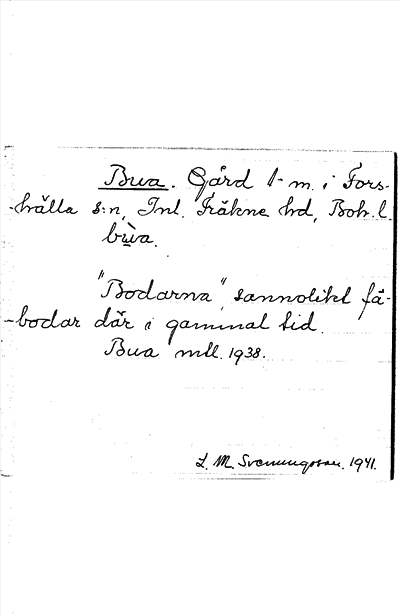 Bua. Gård 1 m. i Fors-
-hälla s:n, Inl. Fräkne hd, Boh. l.
bùa.
"Bodarna", sannolikt fä-
-bodar där i gammal tid.
Bua mll. 1938.
L. M. Svenungsson. 1941.